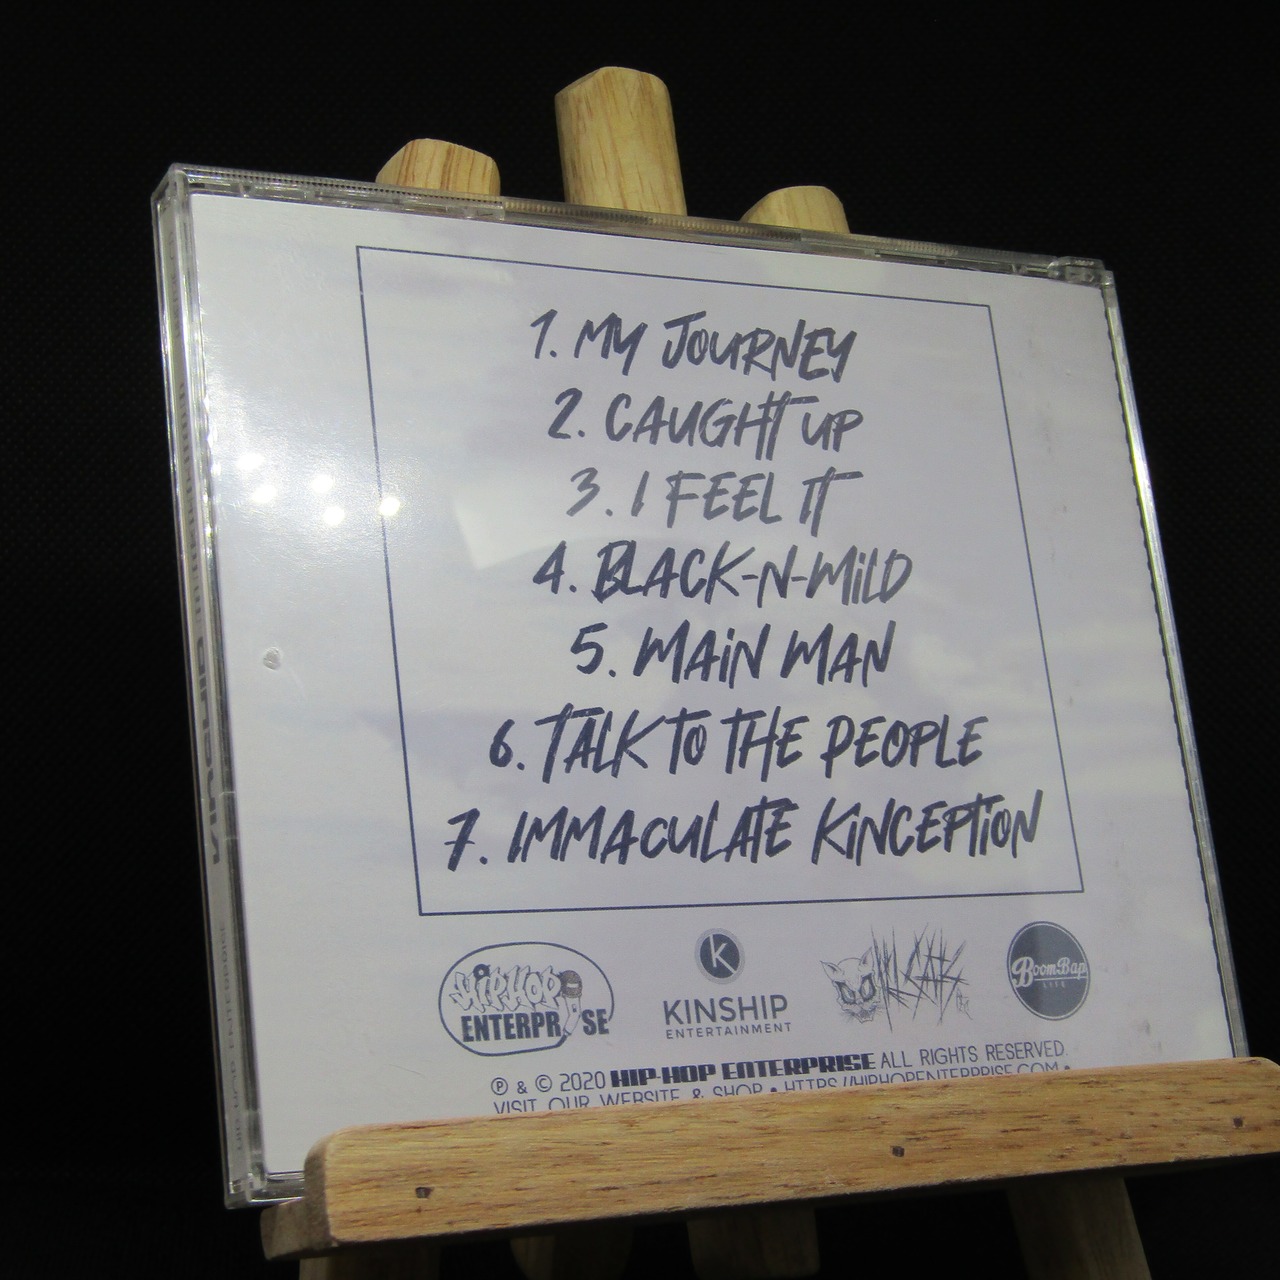 1. MY JOURNEY
2. CAUGHT UP
3. I FEEL IT
4. BLACK-N-MILD
5. MAIN MAN
6. TALK TO THE PEOPLE
7. IMMACULATE KINCEPTION
HIPHOP
ENTERPRISE
K
KINSHIP
ENTERTAINMENT
BoomBap
LIFE
℗ & © 2020 HIP-HOP ENTERPRISE ALL RIGHTS RESERVED.
VISIT OUR WEBSITE & SHOP • HTTPS://HIPHOPENTERPRISE.COM •